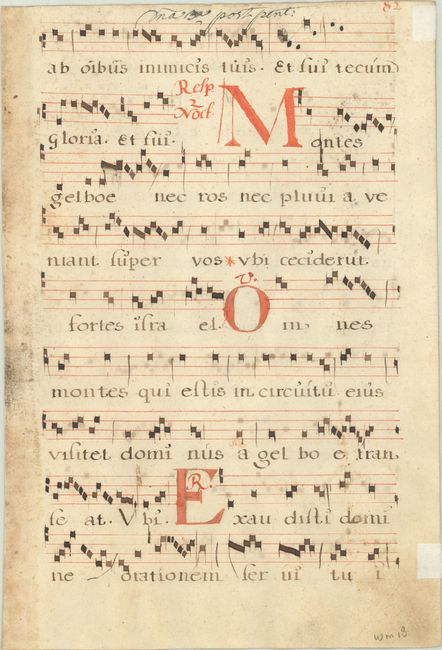 82
post pent:
ab oībus inimicis tuis. Et fui tecum
Resp
2
Noct
gloria. Et fui. Montes
gelboe nec ros nec pluui a ve
niant super vos * vbi ceciderut
v.
fortes isra el. Om nes
montes qui estis in circuitu eius
visitet domi nus a gel bo e tran
R
se at. Vbi. Exau disti domi
ne orationem ser ui tu i
wm 18